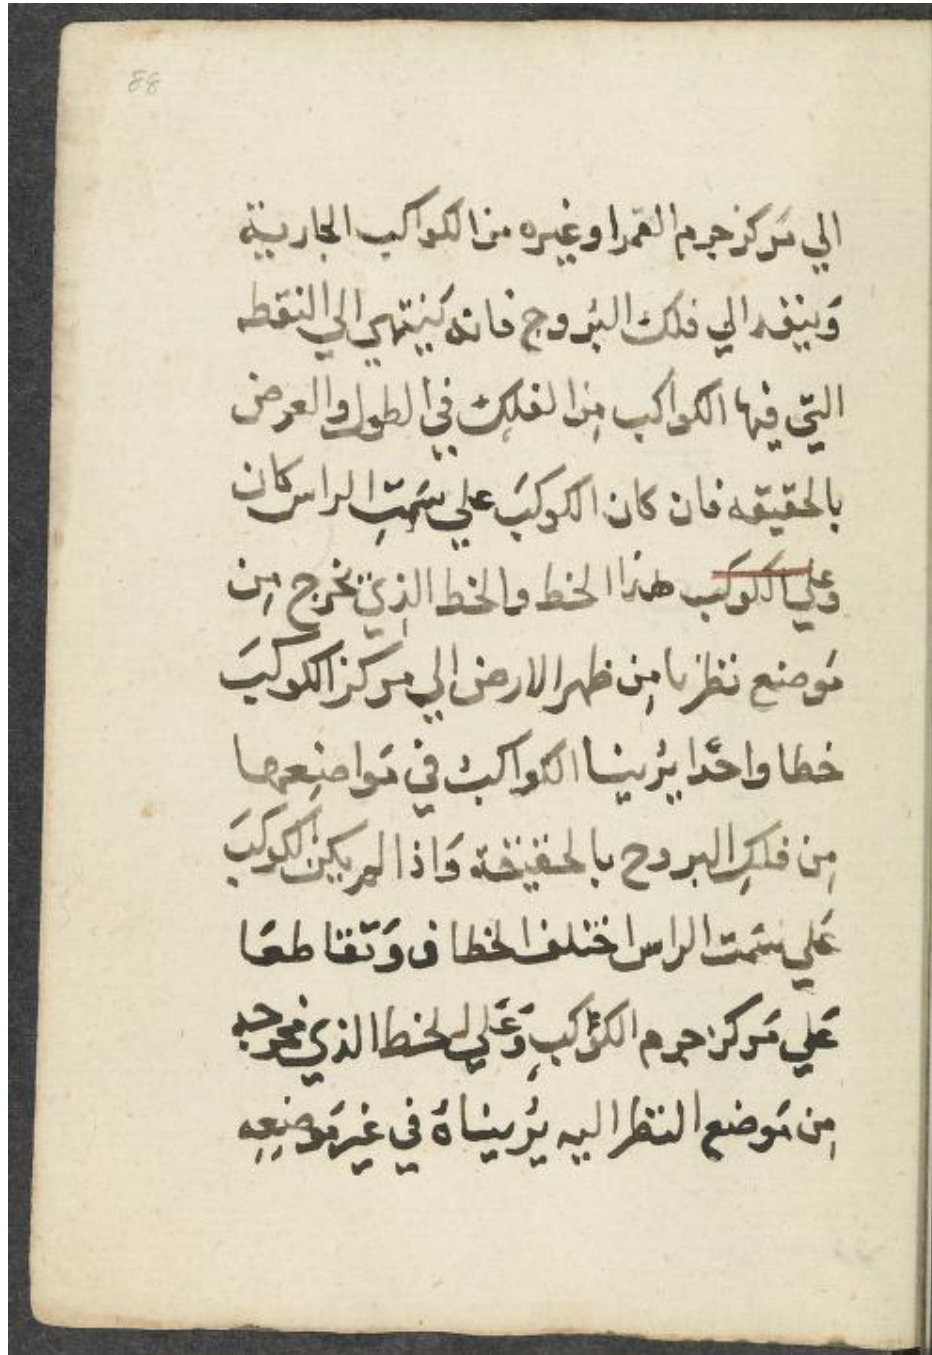 88
الي مَركز جرم القمر او غيره من الكواكب الجارية
وَينفد الي فلك البُروج فانه يَنتهي الي النقطه
التي فيها الكواكب مِن الفلِك في الطول والعرض
بالحقيقه فان كان الكوكبَ علي سَمتِ الراس كان
وعلي الكوكب هذا الخط والخط الذِي يخرج مِن
مَوضع نظرنا مِن ظهر الارض الي مركز الكوكبَ
خطا واحدًا يُرينا الكواكبُ في مَواضِعها
مِن فلكِ البروج بالحقيقة وَاذا لم يكن الكوكبَ
عَلي سَمت الراس اختلف الخطان وَتَقاطعَا
عَلي مَركز جرم الكوكب وَعَلي الخط الذي مخرجه
مِن مَوضع النظر اليه يُريناهُ في غير مَوضِعِهِ